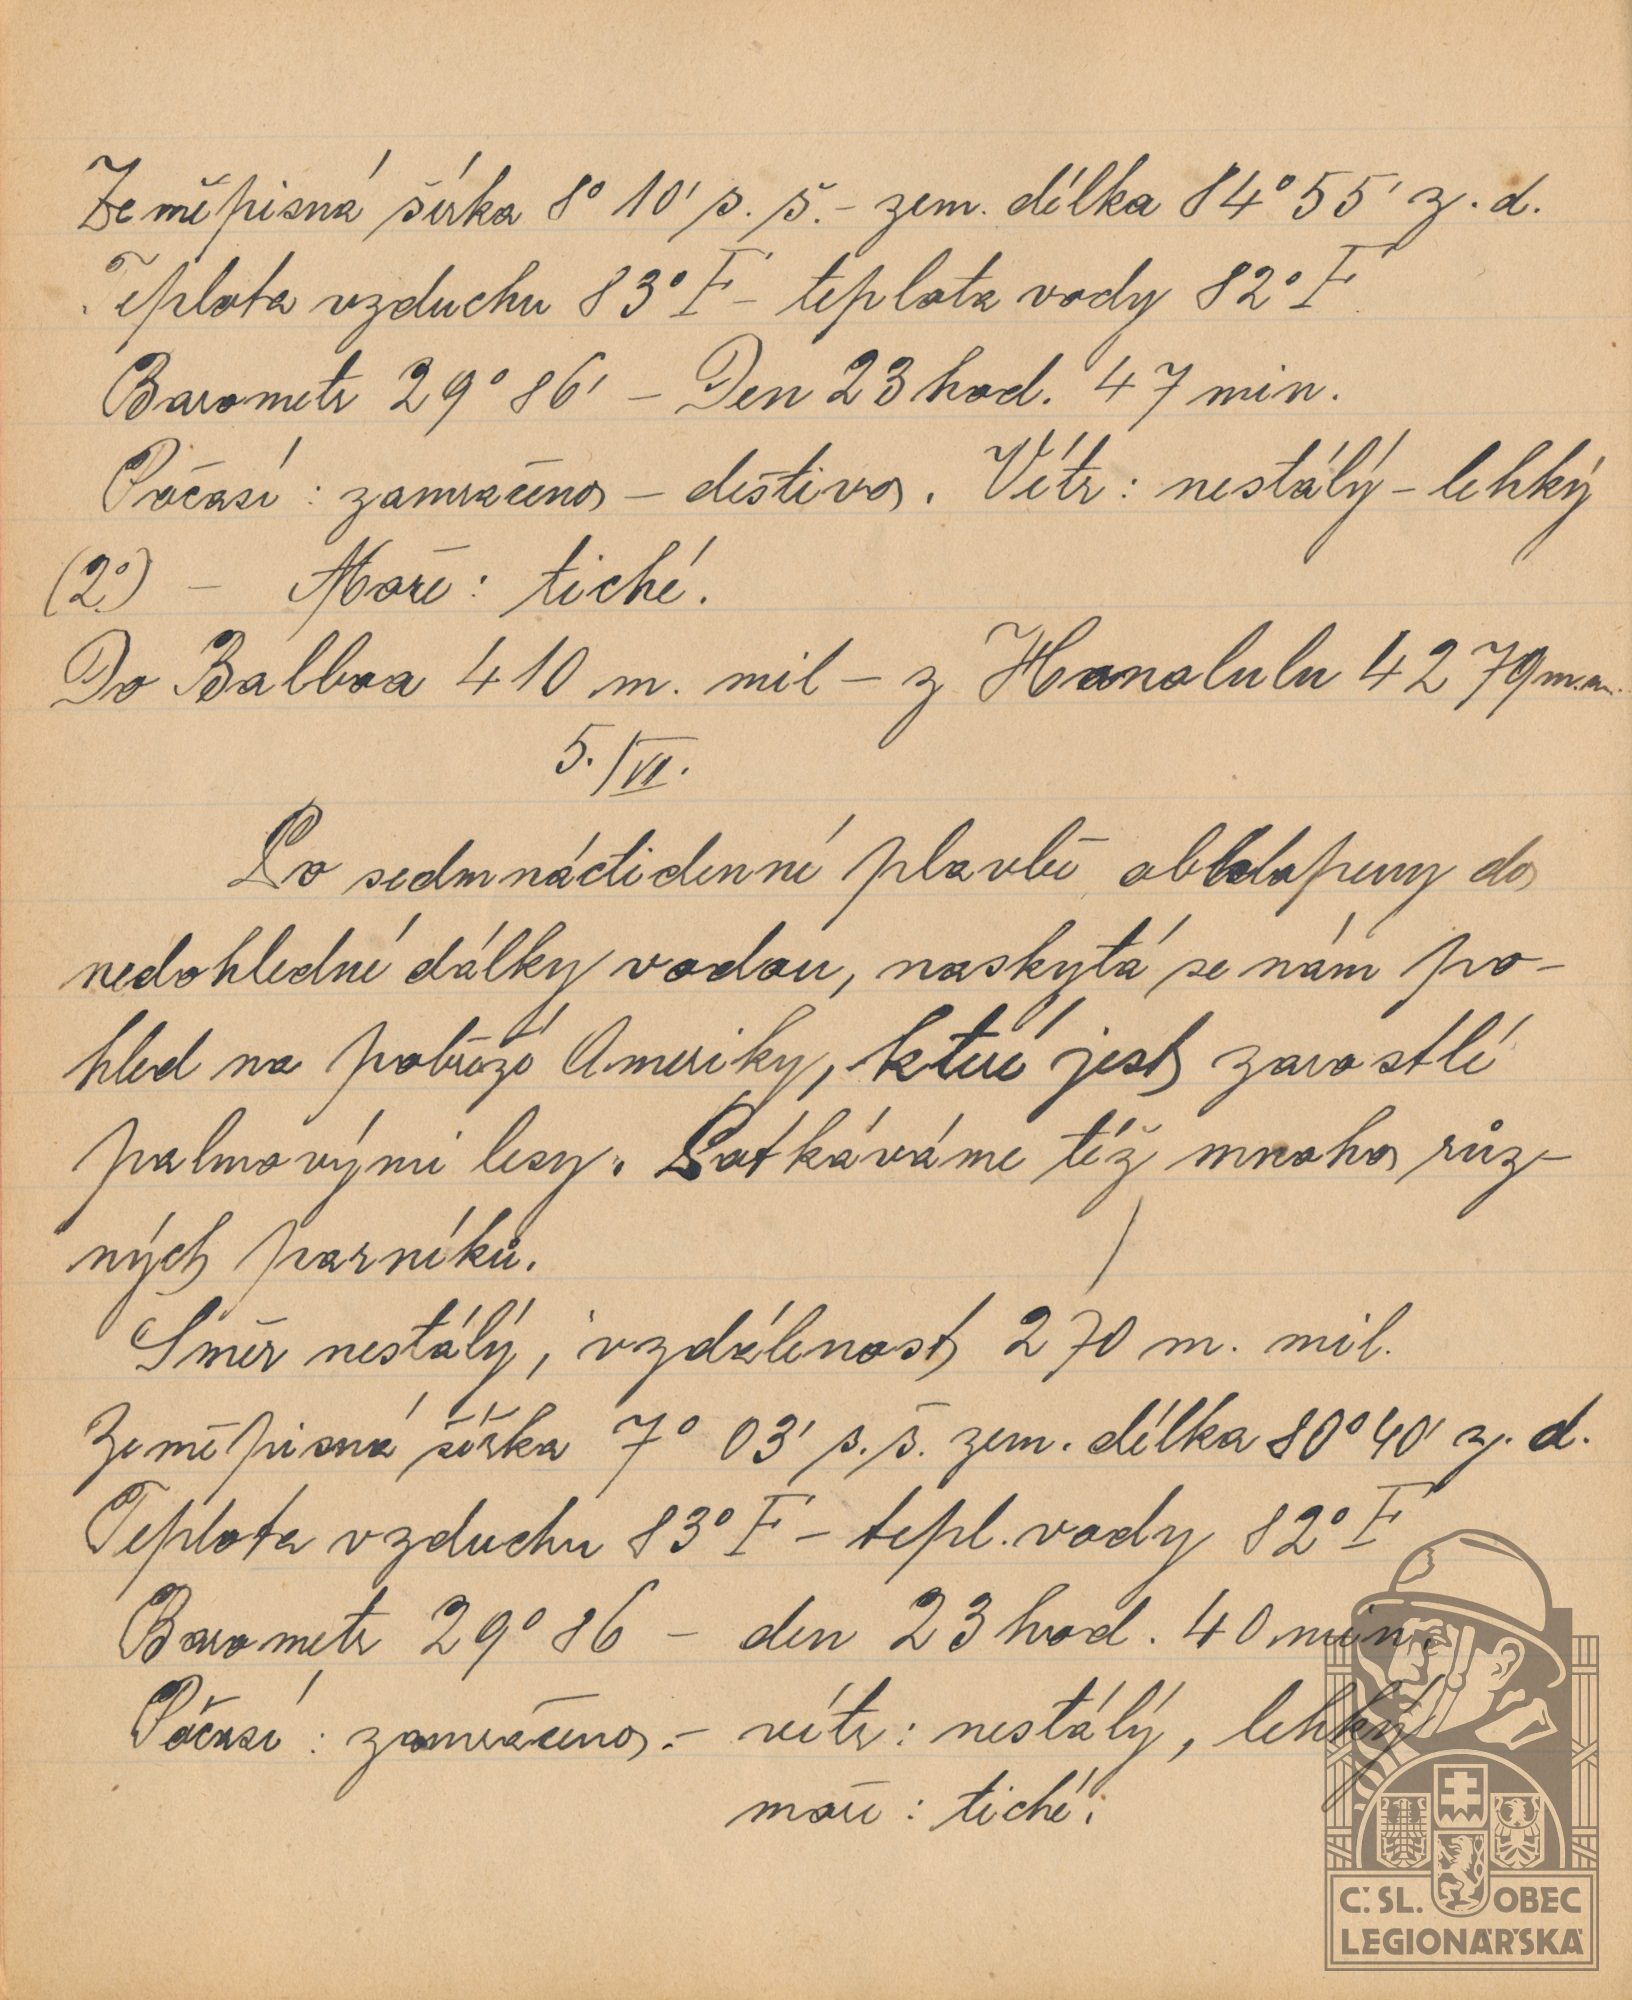 Zeměpisná šírka 8° 10' s. š. – zem. délka 84° 55' z. d.
Teplota vzduchu 83° F – teplota vody 82° F
Barometr 29° 86' – Den 23 hod. 47 min.
Počasí : zamračeno – deštivo. Vítr : nestálý – lehký
(2°) – Moře : tiché.
Do Balboa 410 m. mil – z Honolulu 4279 m. m.
5./VI.
Po sedmnáctidenní plavbě obklopeny do
nedohledné dálky vodou, naskytá se nám po-
hled na pobřeží Ameriky, které jest zarostlé
palmovými lesy. Potkáváme též mnoho růz-
ných parníků.
Směr nestálý, vzdálenost 270 m. mil.
Zeměpisná šířka 7° 03' s. š. zem. délka 80° 40' z. d.
Teplota vzduchu 83° F – tepl. vody 82° F
Barometr 29° 86 – den 23 hod. 40 min.
Počasí : zamračeno. – vítr : nestálý, lehký
moře : tiché.
Č. SL. OBEC
LEGIONÁŘSKÁ